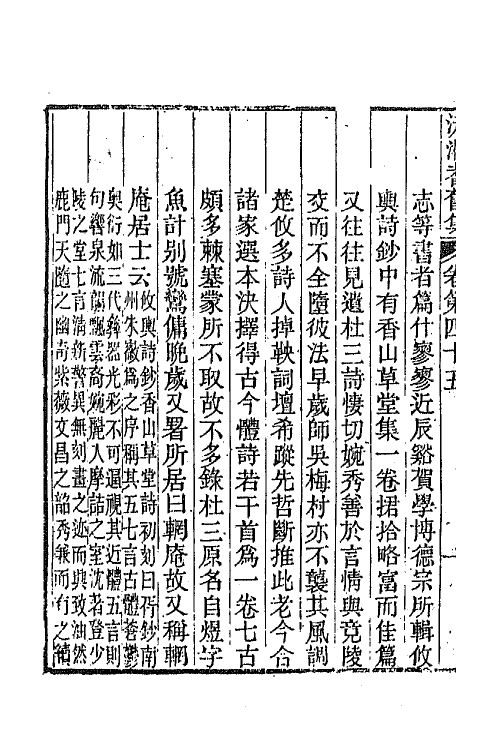 沅湘耆舊集 卷第四十五
志等書者篇什寥寥近辰谿賀學博德宗所輯攸
輿詩鈔中有香山草堂集一卷捃拾略富而佳篇
又往往見遺杜三詩悽切婉秀善於言情與竟陵
交而不全墮彼法早歲師吳梅村亦不襲其風調
楚攸多詩人掉鞅詞壇希蹤先哲斷推此老今合
諸家選本決擇得古今體詩若干首爲一卷七古
頗多棘塞蒙所不取故不多錄杜三原名自煜字
魚計別號鸞傭晚歲又署所居曰輞庵故又稱輞
庵居士云
攸輿詩鈔香山草堂詩初刻曰胥鈔南
州朱徽爲之序稱其五七言古體蒼鬱
奧衍如三代彝器光彩不可逼視其近體五言則
句響泉流韻飄雲奇婉麗入摩詰之室沈著登少
陵之堂七言清新警異無刻畫之迹而興致油然
鹿門天隨之幽奇紫薇文昌之韶秀兼而有之續